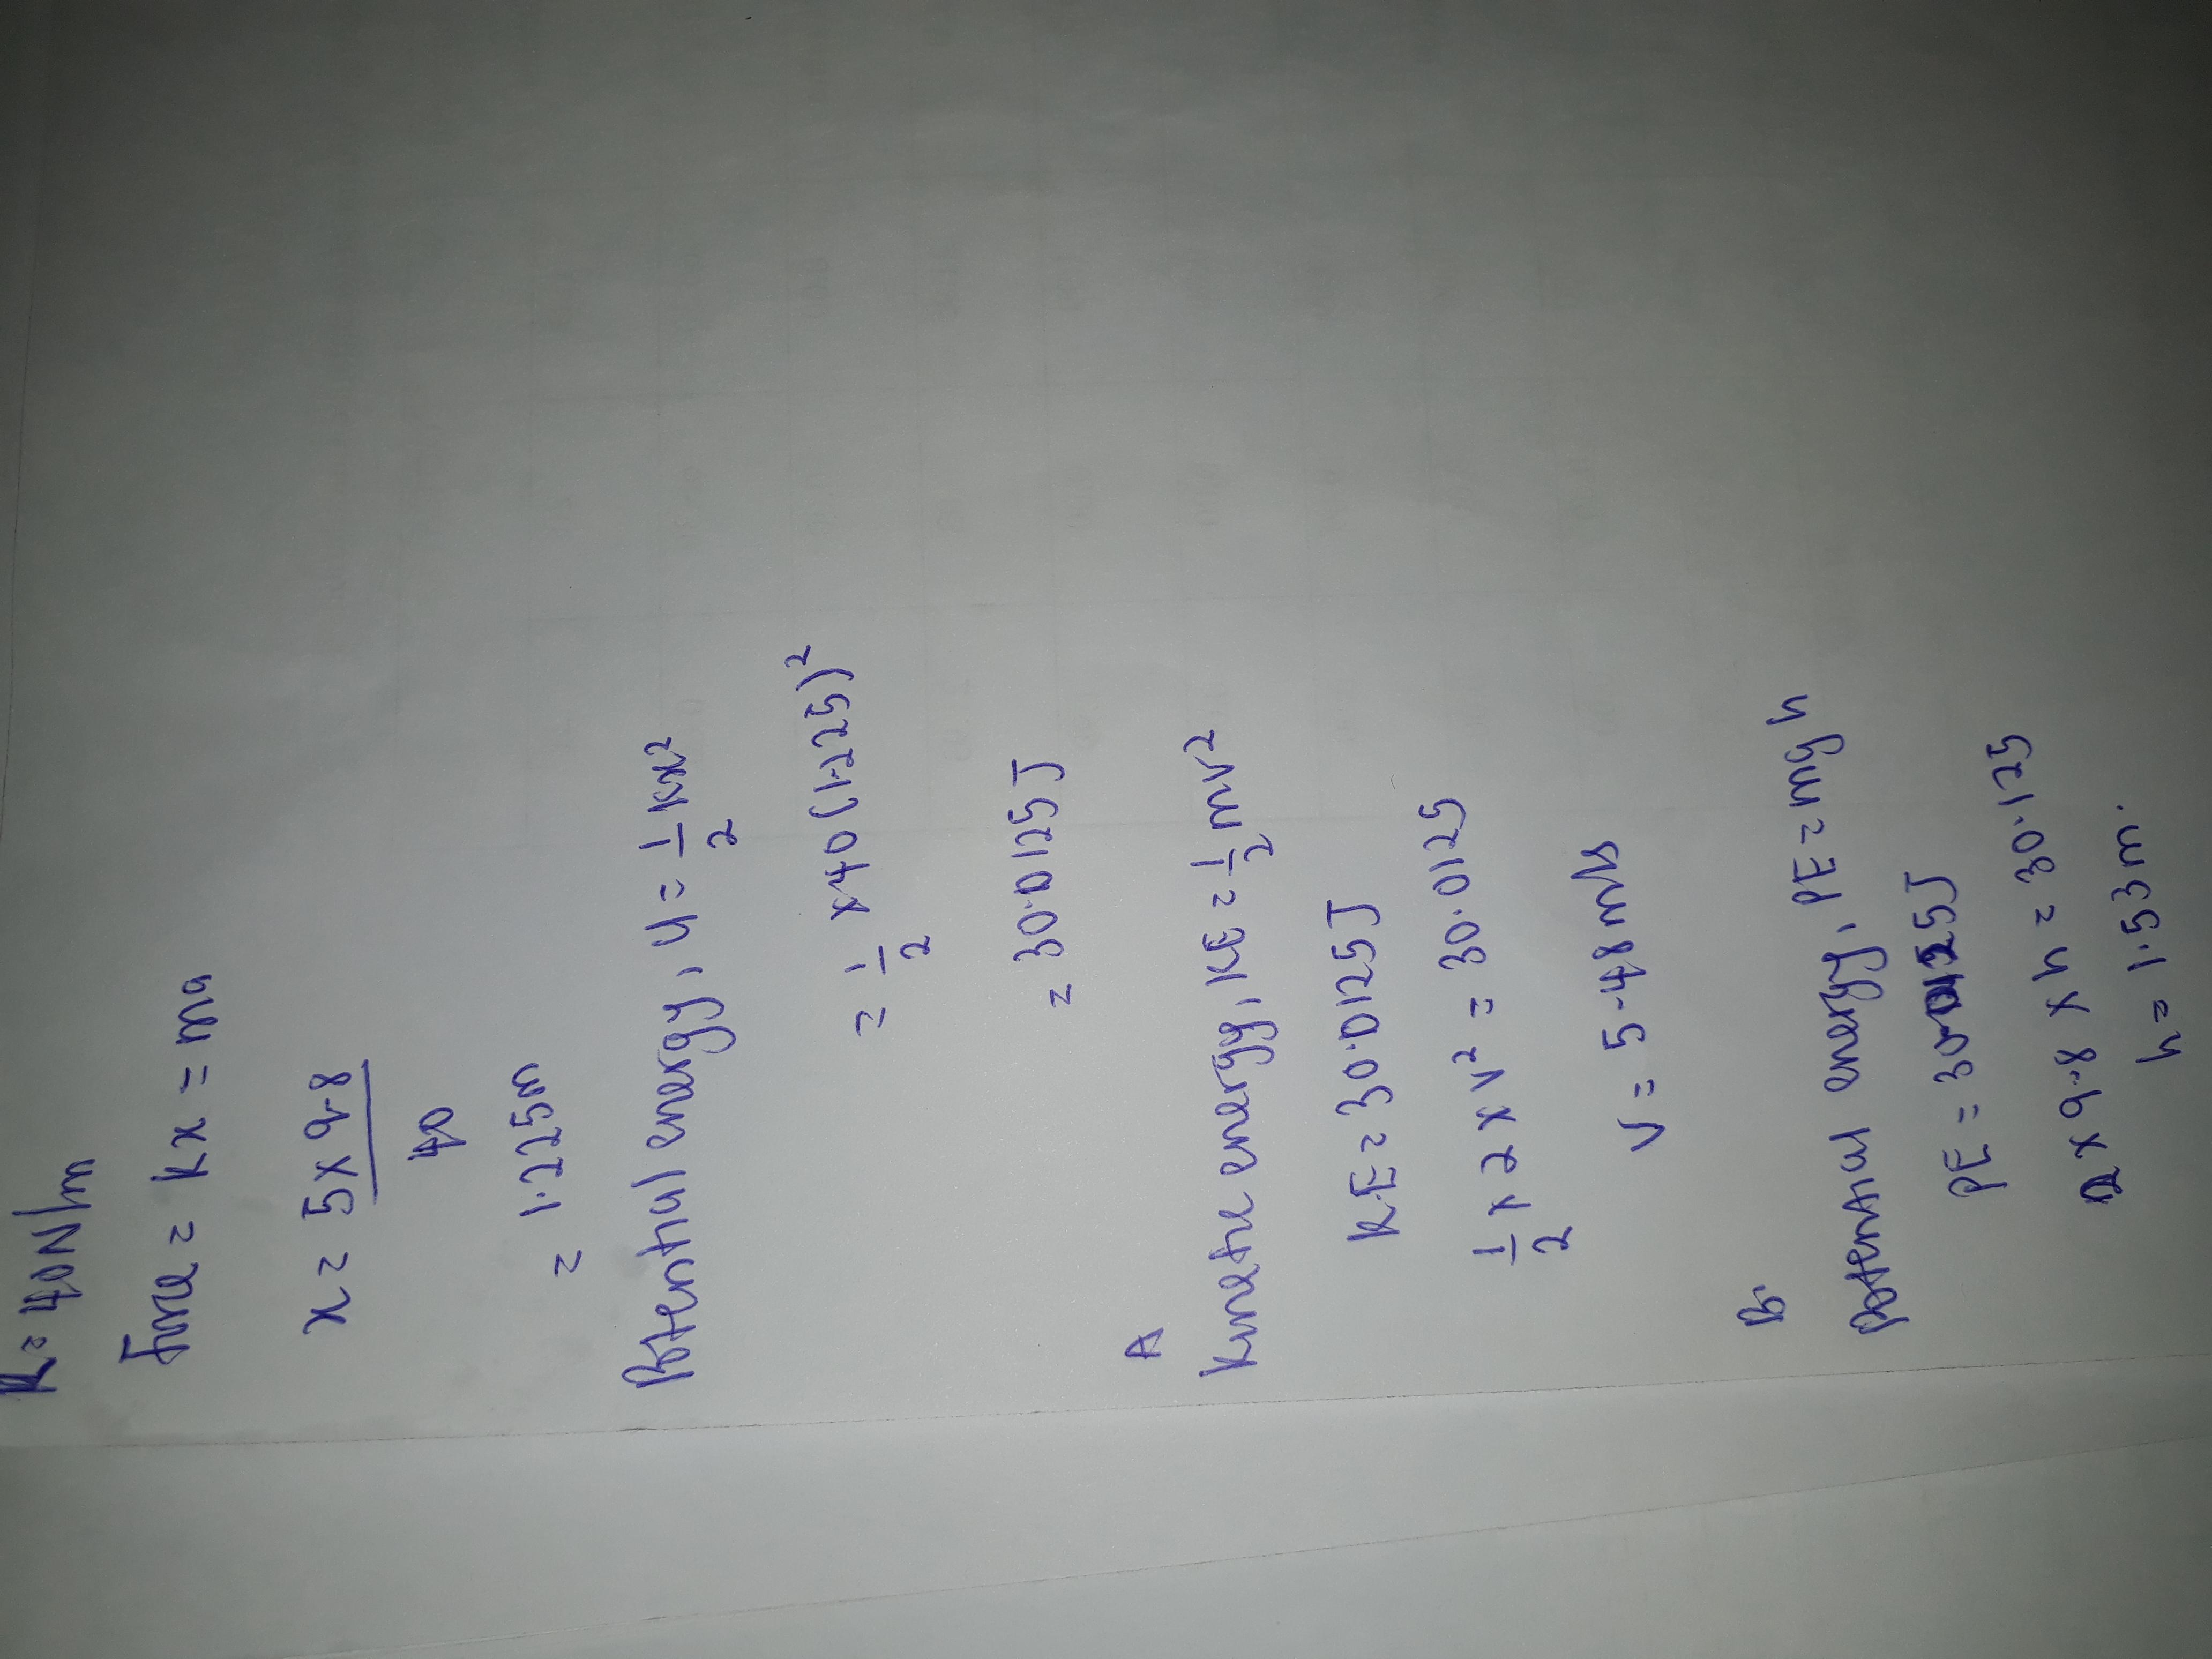 K = 40N/m
Force = kx = ma
x = 5 x 9.8
40
= 1.225m
Potential energy, U = 1/2 kx²
= 1/2 x 40 (1.225)²
= 30.0125J
A
Kinetic energy, K.E = 1/2 mv²
K.E = 30.0125J
1/2 x 2 x v² = 30.0125
V = 5.48 m/s
B.
Potential energy, PE = mgh
PE = 30.0125J
2 x 9.8 x h = 30.125
h = 1.53m.